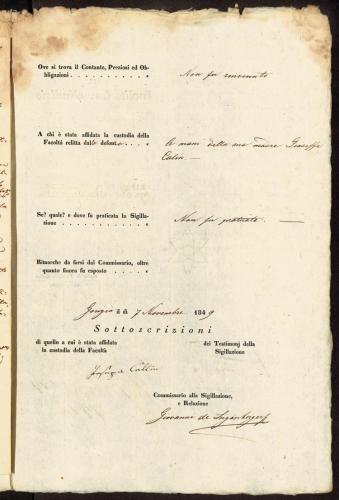 Ove si trova il Contante, Preziosi ed Ob-
bligazioni . . . . . . . . . . . «
Non fu rinvenuto
A chi è stata affidata la custodia della
Facoltà relitta dal defont . . . «
mani della sua madre Giuseppa
Se? quale? e dove fu praticata la Sigilla-
zione . . . . . . . . . . . . . «
Non fu praticata. —
Rimarche da farsi dal Commissario, oltre
quanto finora fu esposto . . . . . «
li 7 Novembre 1849
Sottoscrizioni
di quello a cui è stata affidata
la custodia della Facoltà
dei Testimonj della
Sigillazione
Commissario alla Sigillazione,
e Relazione
Giovanni de